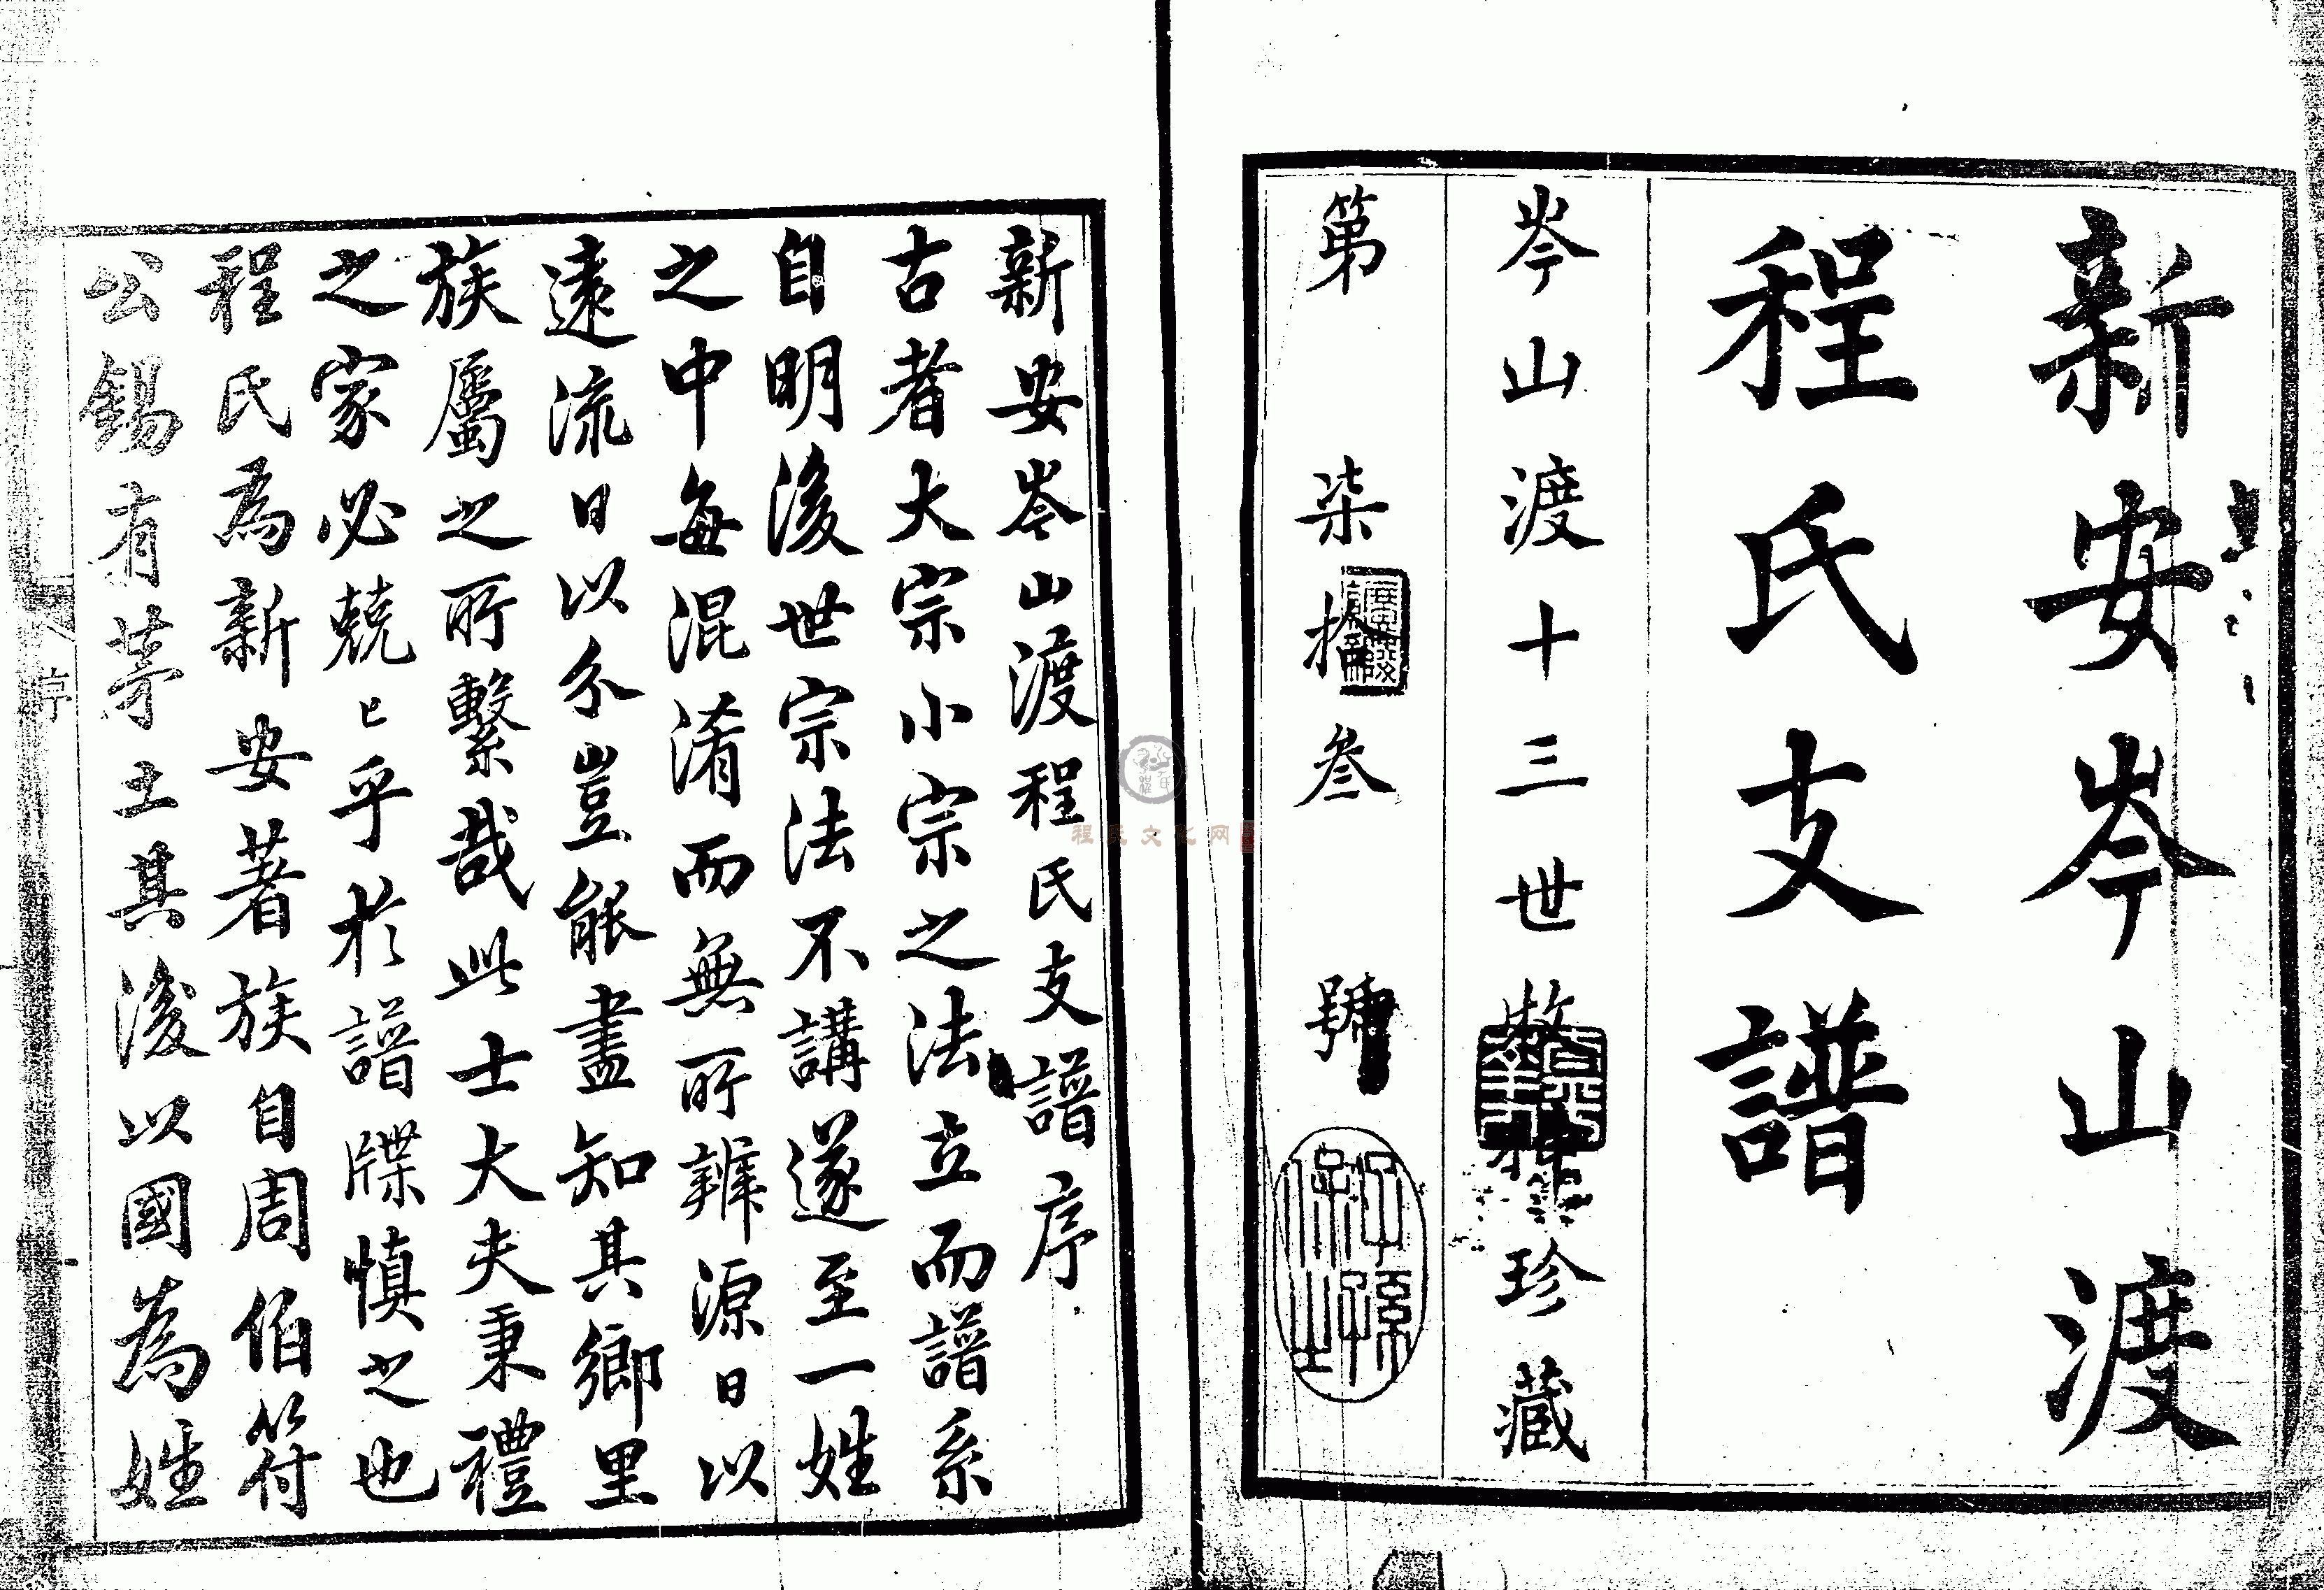 新安岑山渡
程氏支譜
岑山渡十三世 珍藏
第柒拾叁號
新安岑山渡程氏支譜序
古者大宗小宗之法立而譜系
自明後世宗法不講遂至一姓
之中每混淆而無所辨源日以
遠流日以分豈能盡知其鄉里
族屬之所繫哉此士大夫秉禮
之家必兢〻乎於譜牒慎之也
程氏為新安著族自周伯符
公錫有茅土其後以國為姓
序
程氏文化网